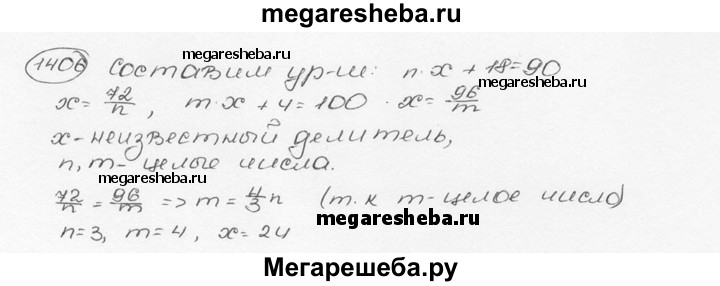 megaresheba.ru
1406 Составим ур-ия: n·x + 18 = 90
megaresheba.ru
x = 72/n, m·x + 4 = 100 · x = 96/m
x - неизвестный делитель,
n, m - целые числа.
megaresheba.ru
72/n = 96/m => m = 4/3 n (т.к m-целое число)
megaresheba.ru
n=3, m=4, x=24
Мегарешеба.ру